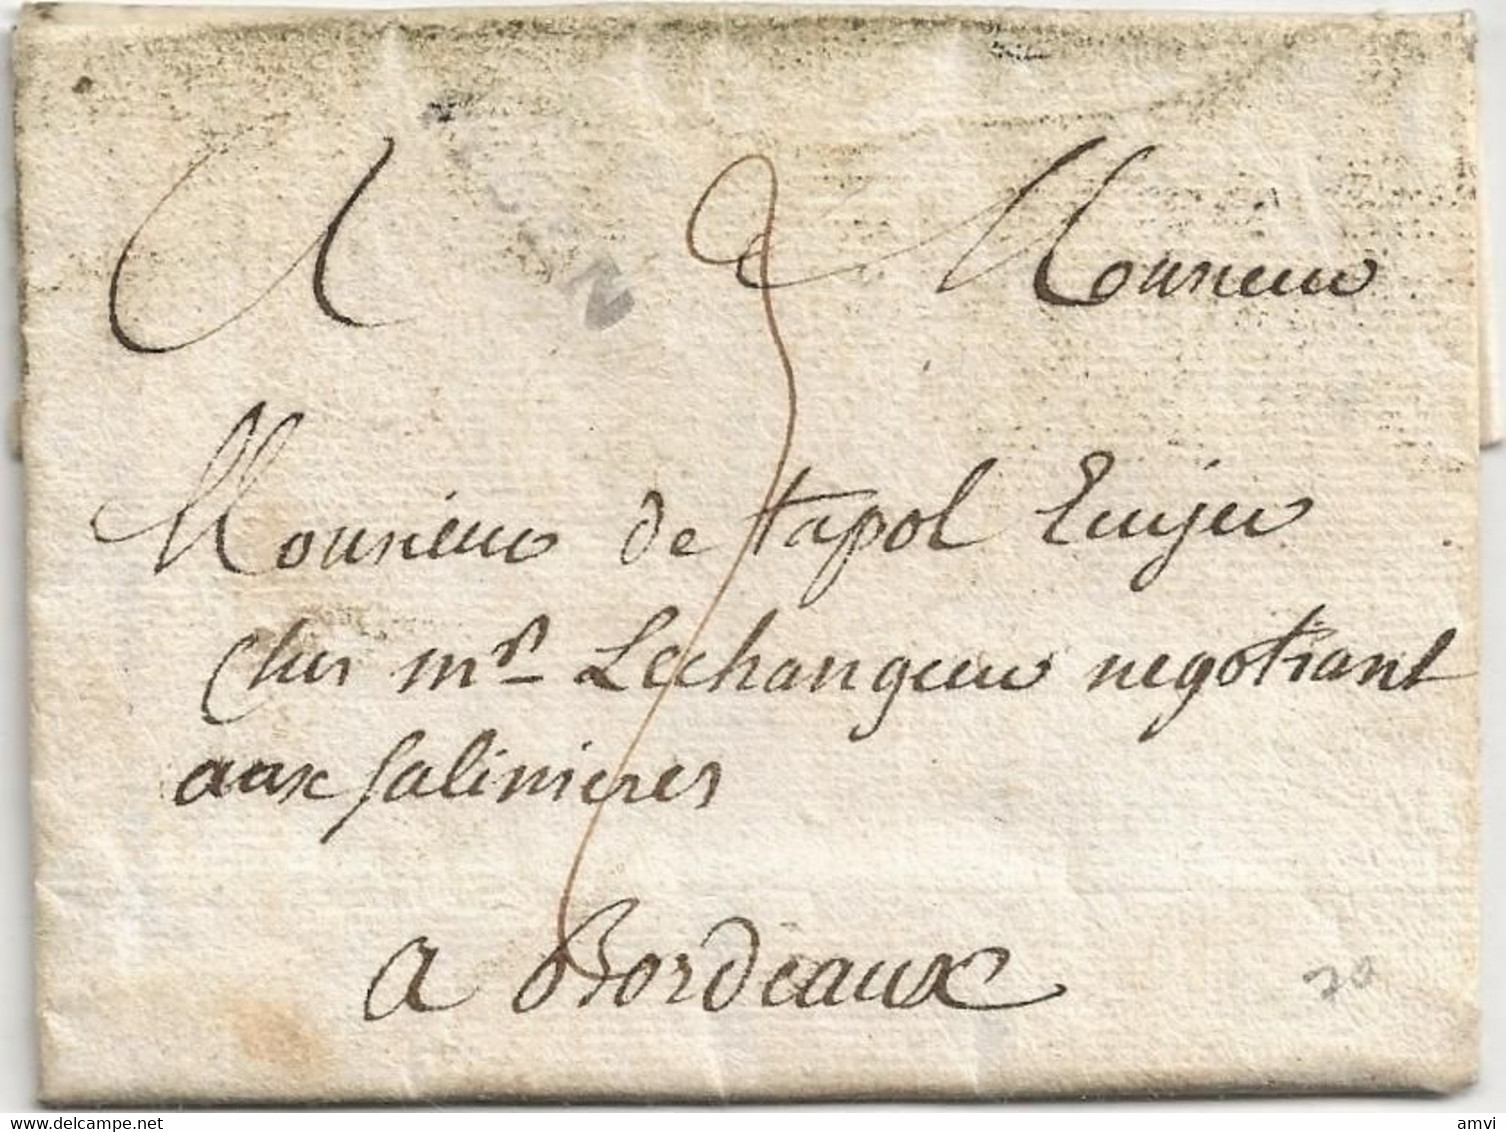 A Monsieur
Monsieur de tapol
Ches mr Lechangeur negotiant
aux salinieres
a Bordeaux
70
www.delcampe.net
amvi